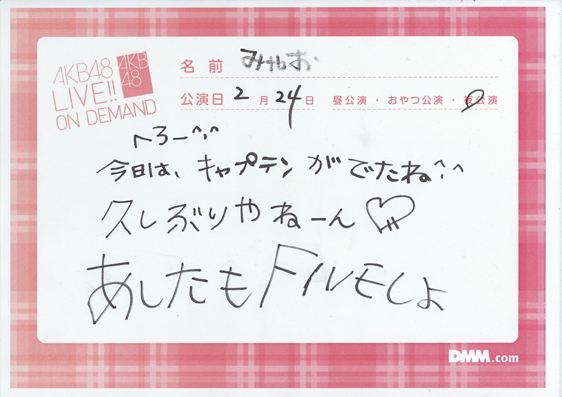 AKB48
LIVE!!
ON DEMAND
AKB
48
名前 みゃお
公演日 2月24日 昼公演・おやつ公演・夜公演
へろー^^
今日は、キャプテンがでたね^^
久しぶりやねーん♡
あしたもFIVEしよ
DMM.com